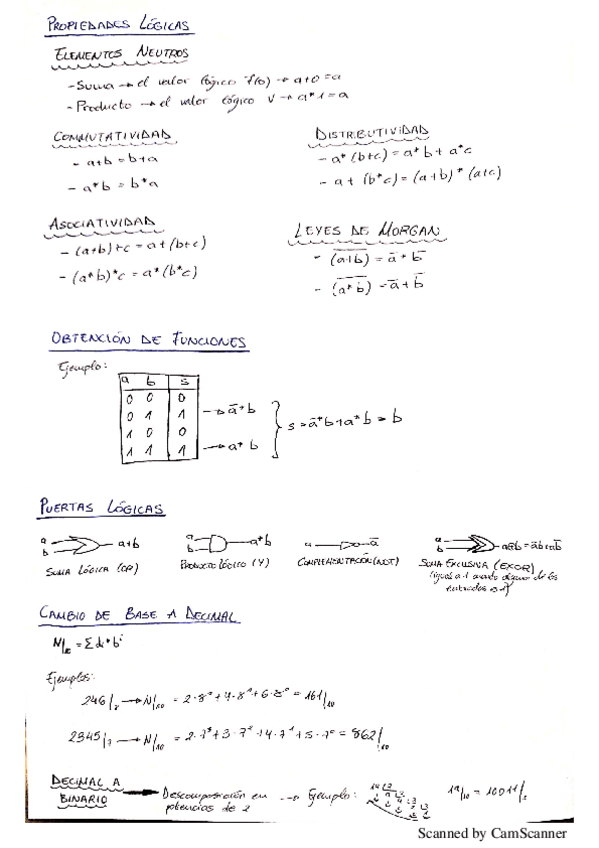 PROPIEDADES LÓGICAS
ELEMENTOS NEUTROS
- Suma → el valor lógico f(0) → a+0=a
- Producto → el valor lógico V → a*1=a
CONMUTATIVIDAD
- a+b=b+a
- a*b=b*a
DISTRIBUTIVIDAD
- a*(b+c)=a*b+a*c
- a+(b*c)=(a+b)*(a+c)
ASOCIATIVIDAD
- (a+b)+c=a+(b+c)
- (a*b)*c=a*(b*c)
LEYES DE MORGAN
- (a+b)‾ = ā*b̄
- (a*b)‾ = ā+b̄
OBTENCIÓN DE FUNCIONES
Ejemplo:
a b s
0 0 0
0 1 1 → ā*b
1 0 0
1 1 1 → a*b
s=ā*b+a*b=b
PUERTAS LÓGICAS
a b a+b
SUMA LÓGICA (OR)
a b a*b
PRODUCTO LÓGICO (Y)
a ā
COMPLEMENTACIÓN (NOT)
a b a⊕b=āb+ab̄
SUMA EXCLUSIVA (EXOR)
CAMBIO DE BASE A DECIMAL
Ejemplos:
→ N/10 = 2·8²+4·8¹+6·8⁰=
2345/7 → N/10 = 2·7³+3·7²+4·7¹+5·7⁰=862/10
DECIMAL A
BINARIO
Descomposición en
potencias de 2
→ Ejemplo:
= 10011/2
Scanned by CamScanner